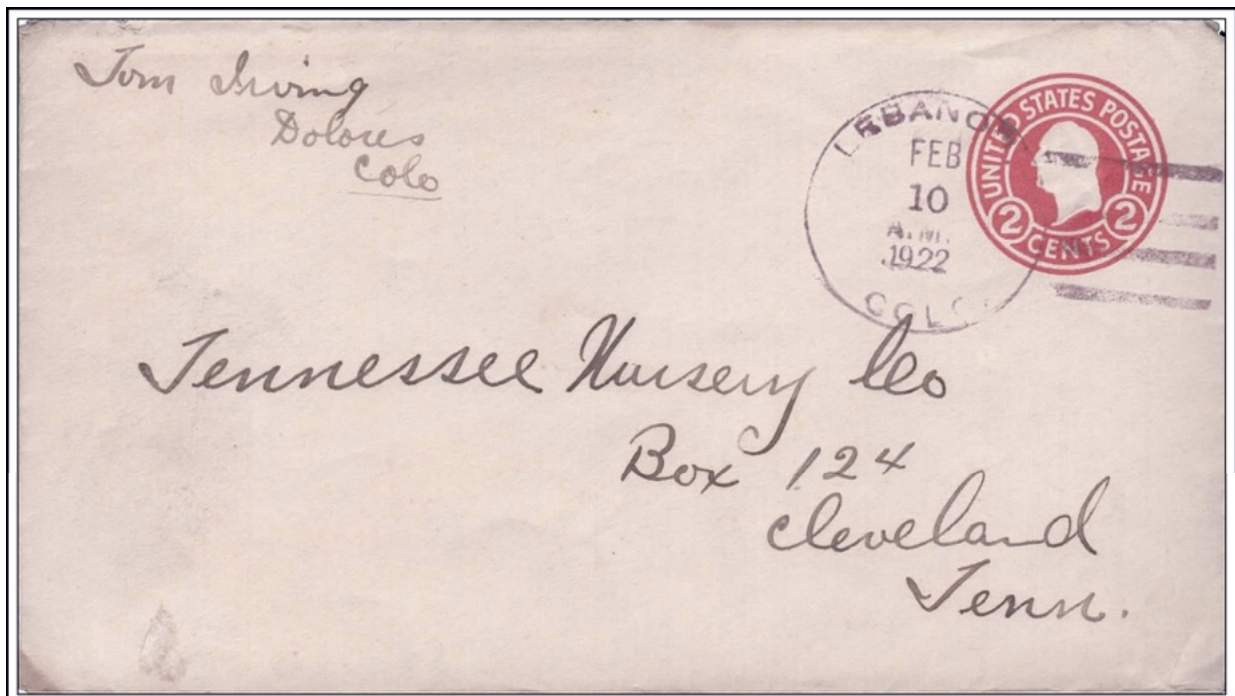 Tom Irving
Dolores
Colo
LEBANON
FEB
10
A.M.
1922
COLO
UNITED STATES POSTAGE
2 CENTS 2
Tennessee Nursery Co
Box 124
Cleveland
Tenn.